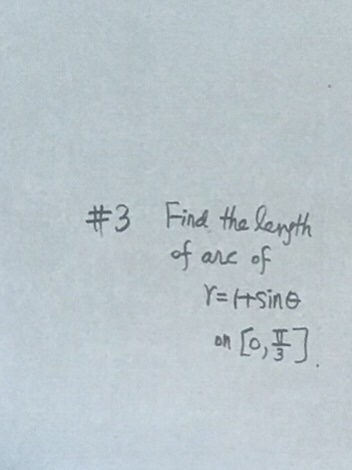 #3 Find the length
of arc of
r=1+sinθ
on [0, π/3].